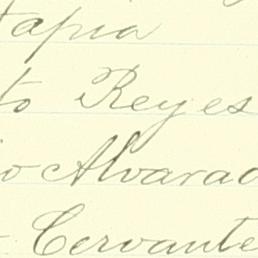 tapia
to Reyes
io Alvarad
Cervante